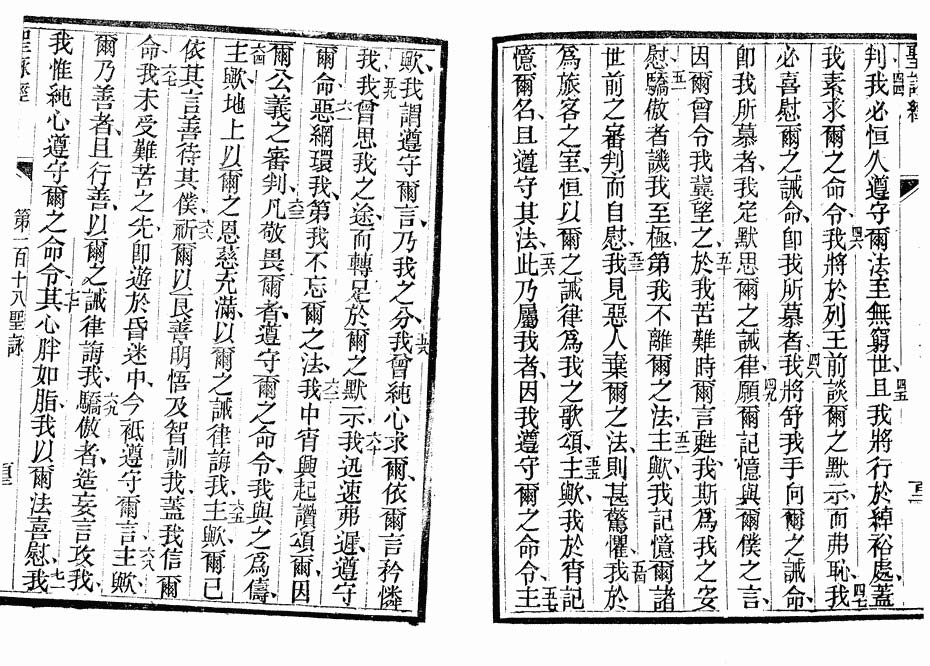 聖詠經
判我必恒久遵守爾法至無窮世、四五且我將行於綽裕處、蓋
我素求爾之命令、四六我將於列王前談爾之默示而弗恥、四七我
必喜慰爾之誡命、卽我所慕者、四八我將舒我手向爾之誡命、
卽我所慕者、我定默思爾之誡律、四九願爾記憶與爾僕之言、
因爾曾令我冀望之、五十於我苦難時爾言甦我、斯為我之安
慰、五一驕傲者譏我至極、第我不離爾之法、五二主歟、我記憶爾諸
世前之審判而自慰、五三我見惡人棄爾之法、則甚驚懼、五四我於
為旅客之室、恒以爾之誡律為我之歌頌、五五主歟、我於宵記
憶爾名、且遵守其法、五六此乃屬我者、因我遵守爾之命令、五七主
歟、我謂遵守爾言、乃我之分、五八我曾純心求爾、依爾言矜憐
我、五九我曾思我之途、而轉足於爾之默示、六十我迅速弗遲遵守
爾命、六一惡網環我、第我不忘爾之法、六二我中宵興起讚頌爾、因
爾公義之審判、六三凡敬畏爾者、遵守爾之命令、我與之為儔、
六四主歟、地上以爾之恩慈充滿、以爾之誡律誨我、六五主歟、爾已
依其言善待其僕、六六祈爾以良善明悟及智訓我、蓋我信爾
命、六七我未受難苦之先、卽遊於昏迷中、今祗遵守爾言、六八主歟、
爾乃善者、且行善、以爾之誡律誨我、六九驕傲者造妄言攻我、
我惟純心遵守爾之命令、七十其心胖如脂、我以爾法喜慰、七一我
聖詠經
第一百十八聖詠